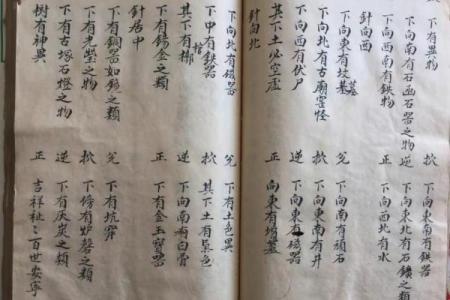 下有物 下向東南有鐵器
下向南有石函石器之物 逆 下向東北有石鑛之類
下向西南有鉄物 正 下向西北有水
針向西
下向東有坟墓 兌 下向南有頑石
下向北有古廟窑怪 下向東南有井
下向西有伏尸 逆 下向東有磁器
其下土必空虛 正 向東有墳墓
針向北
下向北有磁器 兌 下有土色異
下中有鉄器 其下土有色
其下有槨 逆 下向南有白骨
下有錫金之類 正 下有金玉寶器
針居中
下有銅器如鏡之類 兌 下有坑穽
下有光瑩之物 下有炉磬之類
下有古塚石磴之物 逆 下有灰炭之類
樹有神異 正 吉祥祉之百世安寧